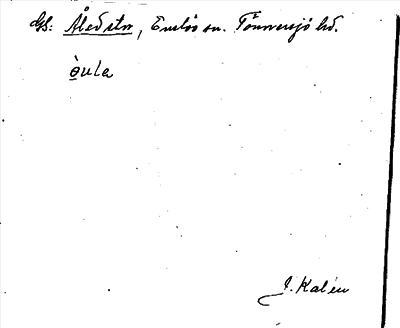 Gs: Åled stn, Enslövs sn. Tönnersjö hd.
òula
J. Kalén